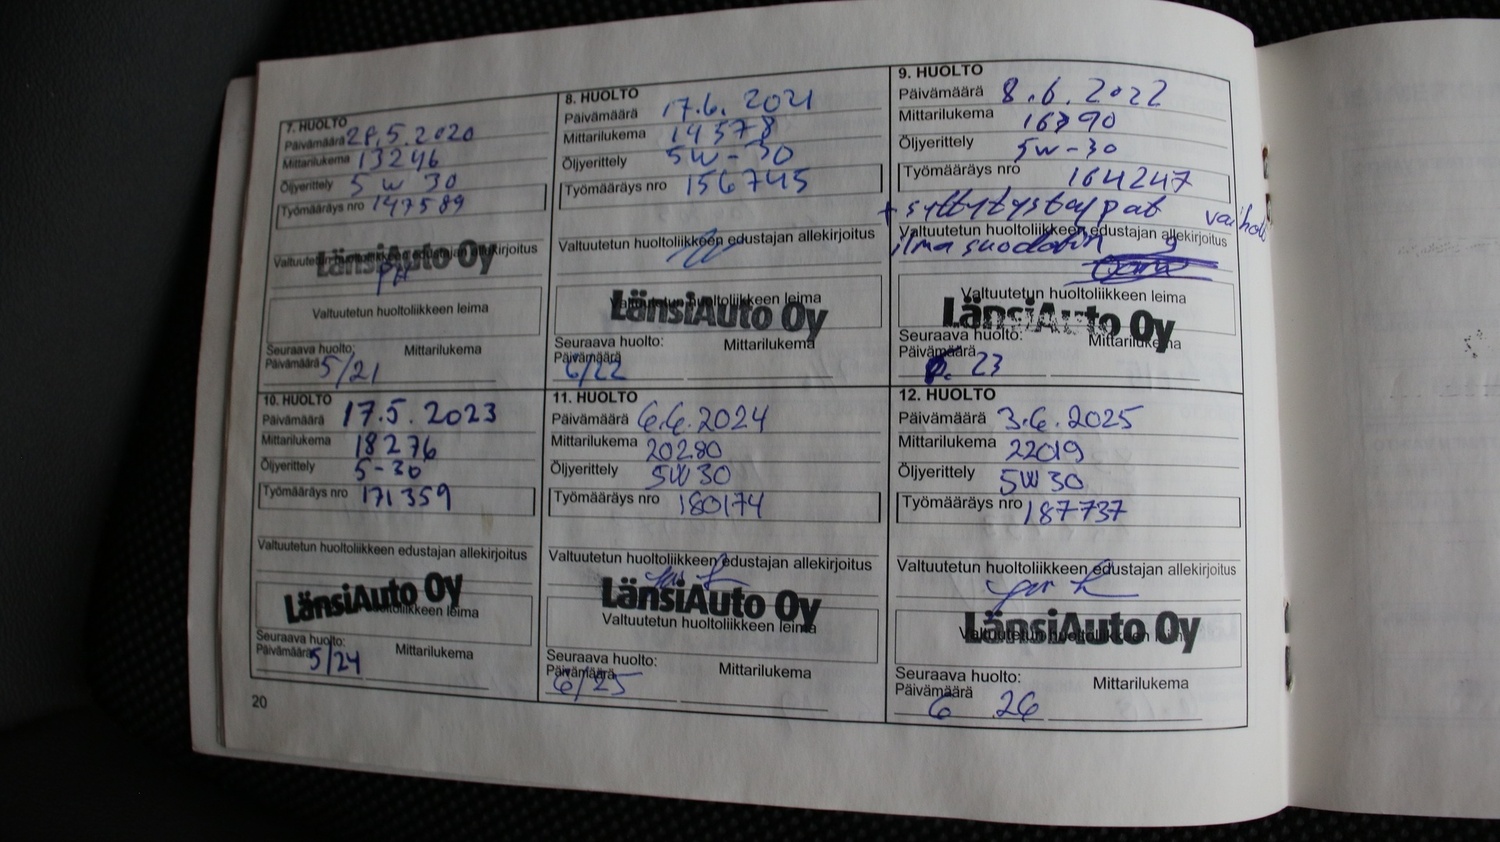 7. HUOLTO
Päivämäärä 28.5.2020
Mittarilukema 13246
Öljyerittely 5 W 30
Työmääräys nro 147589
Valtuutetun huoltoliikkeen edustajan allekirjoitus
LänsiAuto Oy
Valtuutetun huoltoliikkeen leima
Seuraava huolto: Mittarilukema
Päivämäärä 5/21
8. HUOLTO
Päivämäärä 17.6.2021
Mittarilukema 14578
Öljyerittely 5W-30
Työmääräys nro 156745
Valtuutetun huoltoliikkeen edustajan allekirjoitus
Valtuutetun huoltoliikkeen leima
LänsiAuto Oy
Seuraava huolto: Mittarilukema
Päivämäärä
6/22
9. HUOLTO
Päivämäärä 8.6.2022
Mittarilukema 16790
Öljyerittely 5W-30
Työmääräys nro 164247
+ sytytystulpat vaihdo
Valtuutetun huoltoliikkeen edustajan allekirjoitus
ilmasuodatin
Valtuutetun huoltoliikkeen leima
LänsiAuto Oy
Seuraava huolto: Mittarilukema
Päivämäärä
23
10. HUOLTO
Päivämäärä 17.5.2023
Mittarilukema 18276
Öljyerittely 5-30
Työmääräys nro 171359
Valtuutetun huoltoliikkeen edustajan allekirjoitus
LänsiAuto Oy
huoltoliikkeen leima
Seuraava huolto: Mittarilukema
Päivämäärä 5/24
11. HUOLTO
Päivämäärä 6.6.2024
Mittarilukema 20280
Öljyerittely 5W30
Työmääräys nro 180174
Valtuutetun huoltoliikkeen edustajan allekirjoitus
LänsiAuto Oy
Valtuutetun huoltoliikkeen leima
Seuraava huolto: Mittarilukema
Päivämäärä
6/25
12. HUOLTO
Päivämäärä 3.6.2025
Mittarilukema 22019
Öljyerittely 5W30
Työmääräys nro 187737
Valtuutetun huoltoliikkeen edustajan allekirjoitus
LänsiAuto Oy
Valtuutetun huoltoliikkeen leima
Seuraava huolto: Mittarilukema
Päivämäärä
6 26
20